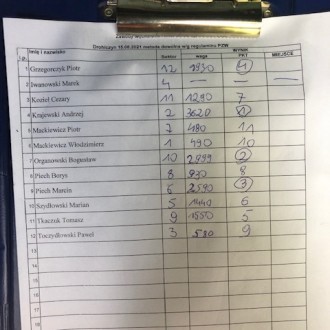 Drohiczyn 15.08.2021 metoda dowolna wg regulaminu PZW
WYNIK
Imię i nazwisko waga PKT MIEJSCE
1 Grzegorczyk Piotr 12 1930 4
2 Iwanowski Marek 4 — —
3 Kozieł Cezary 11 1290 7
4 Krajewski Andrzej 2 3620 1
5 Mackiewicz Piotr 7 480 11
6 Mackiewicz Włodzimierz 1 490 10
7 Organowski Bogusław 10 2999 2
8 Piech Borys 8 930 8
9 Piech Marcin 6 2590 3
10 Szydłowski Marian 5 1440 6
11 Tkaczuk Tomasz 9 1550 5
12 Tuczydłowski Paweł 3 580 9